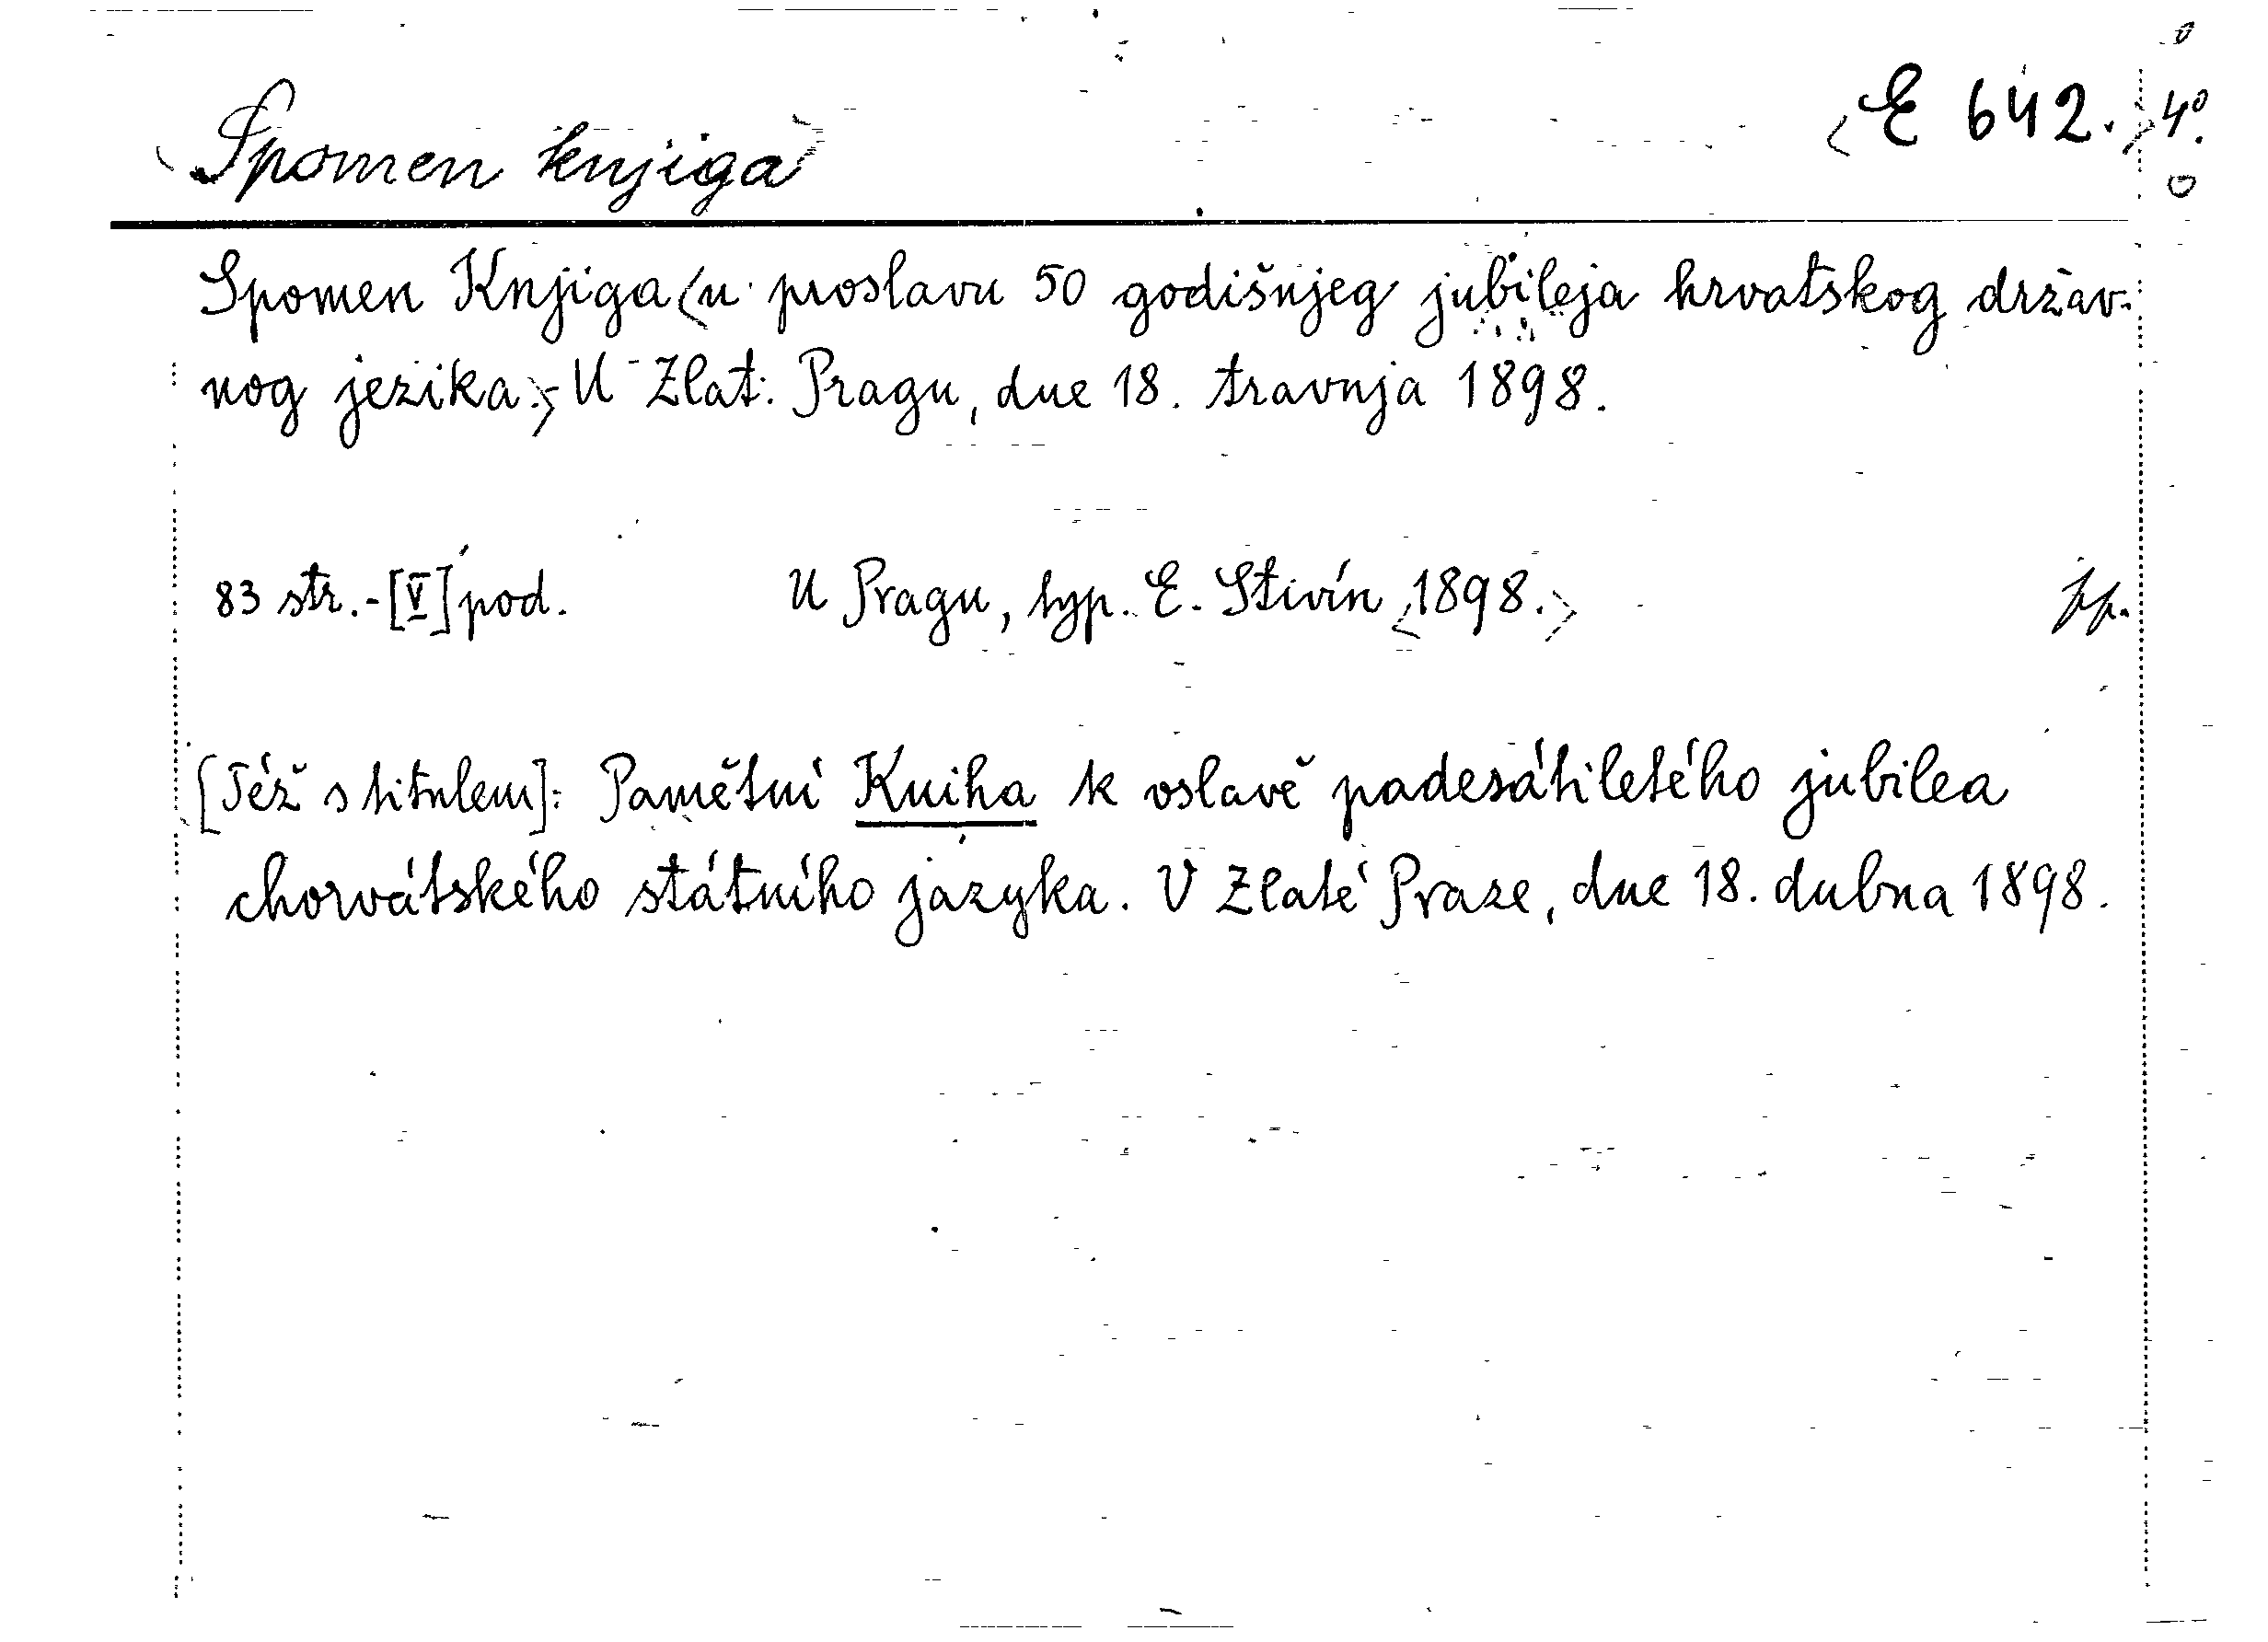 Spomen knjiga <E 642.> 4°.
Spomen Knjiga <u proslavu 50 godišnjeg jubileja hrvatskog držav-
nog jezika.> U Zlat. Pragu, dne 18. travnja 1898.
83 str.-[V] pod. U Pragu, typ. E. Stivín <1898.>
[Též s titulem]: Pamětní Kniha k oslavě padesátiletého jubilea
chorvátského státního jazyka. V Zlaté Praze, dne 18. dubna 1898.